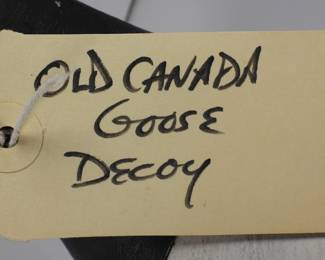 OLD CANADA
GOOSE
DECOY